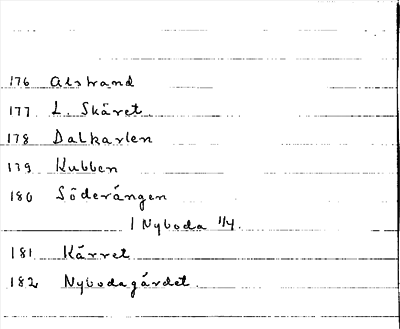 176 Alstrand
177 L. Skäret
178 Dalkarlen
179 Kubben
180 Söderängen
I Nyboda 1/4.
181 Kärret
182 Nybodagärdet